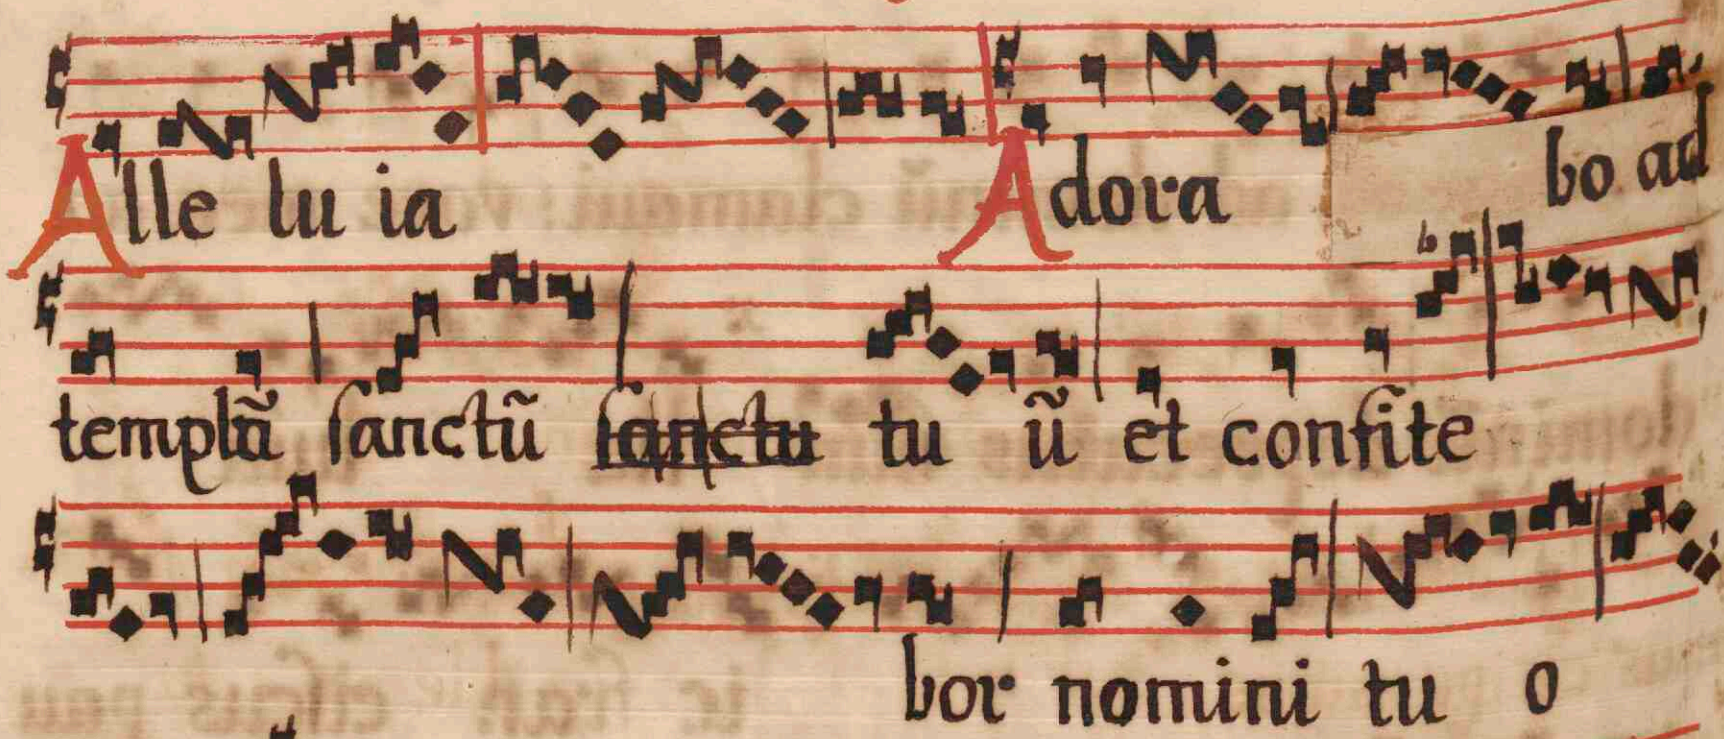 Alle lu ia Adora bo ad
templũ sanctũ sanctu tu ũ et confite
bor nomini tu o